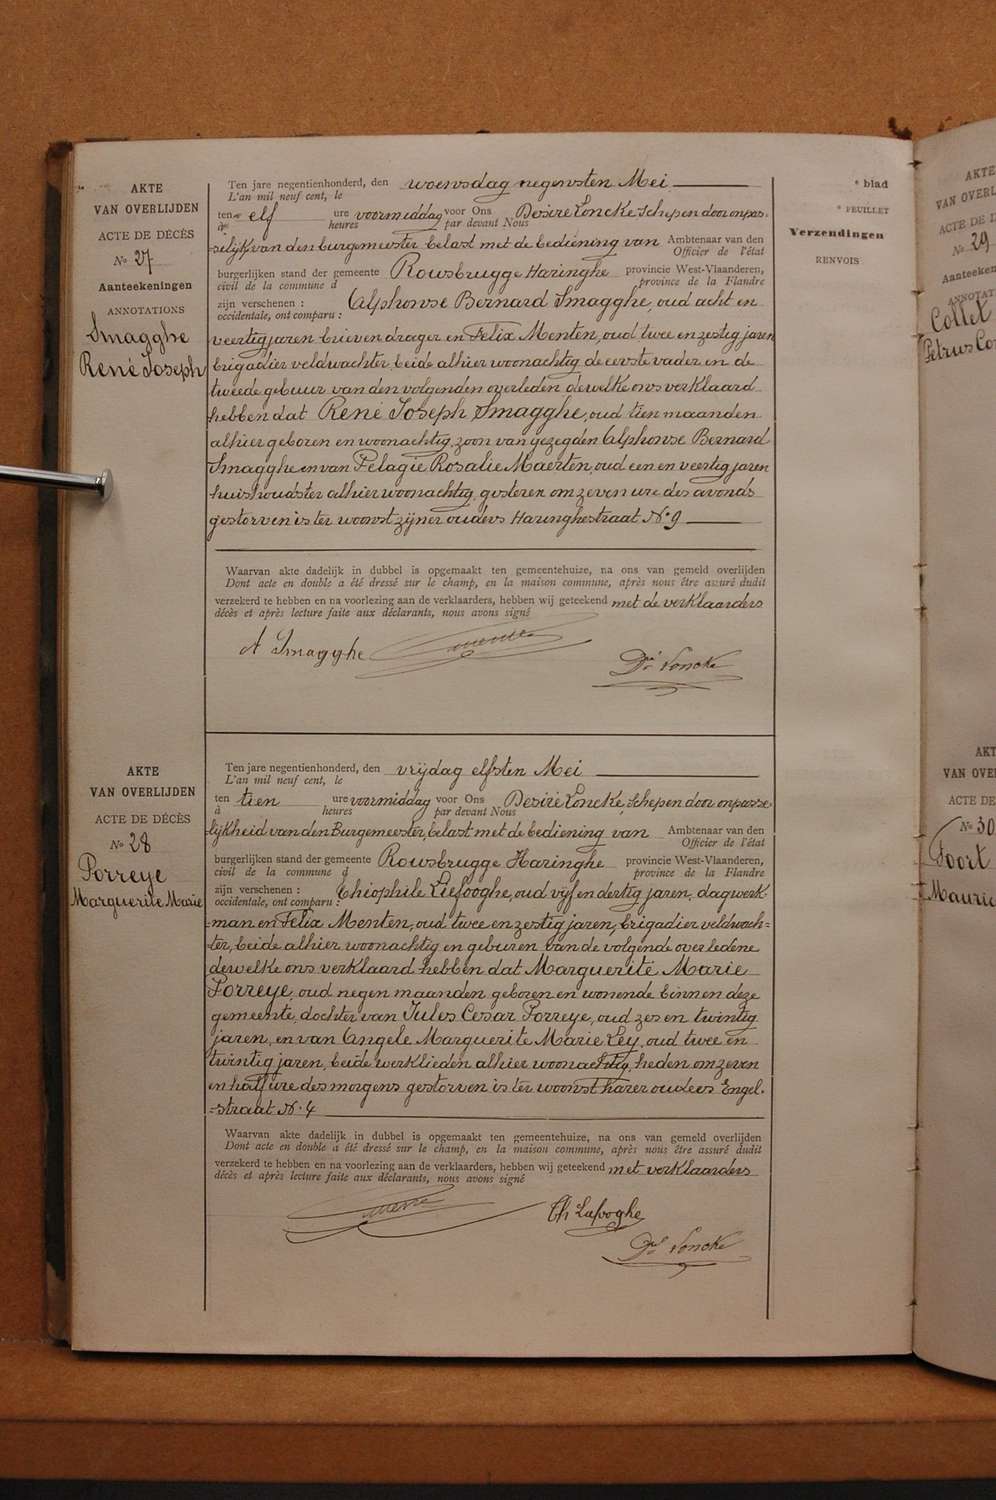 AKTE
VAN OVERLIJDEN
ACTE DE DÉCÈS
No 27
Aanteekeningen
ANNOTATIONS
Smagghe
René Joseph
Ten jare negentienhonderd, den woensdag negensten Mei
L'an mil neuf cent, le
ten elf ure voormiddag voor Ons Desiré Loncke, schepen door onpas-
à heures par devant Nous
selijk van den burgemeester belast met de bediening van Ambtenaar van den
Officier de l'état
burgerlijken stand der gemeente Rousbrugge Haringhe provincie West-Vlaanderen,
civil de la commune d province de la Flandre
zijn verschenen : Alphonse Bernard Smagghe, oud acht en
occidentale, ont comparu :
veertig jaren brievendrager en Felix Menten, oud twee en zestig jaren
brigadier veldwachter, beide alhier woonachtig de eerste vader en de
tweede gebuur van den volgenden overleden dewelke ons verklaard
hebben dat René Joseph Smagghe, oud tien maanden
alhier geboren en woonachtig, zoon van gezegden Alphonse Bernard
Smagghe en van Pelagie Rosalie Maerten, oud een en veertig jaren
huishoudster alhier woonachtig, gisteren om zeven ure des avonds
gestorven is ter woonst zijner ouders Haringhestraat No 9
Waarvan akte dadelijk in dubbel is opgemaakt ten gemeentehuize, na ons van gemeld overlijden
Dont acte en double a été dressé sur le champ, en la maison commune, après nous être assuré dudit
verzekerd te hebben en na voorlezing aan de verklaarders, hebben wij geteekend met de verklaarders
décès et après lecture faite aux déclarants, nous avons signé
A Smagghe
Dré Loncke
AKTE
VAN OVERLIJDEN
ACTE DE DÉCÈS
No 28
Porreye
Marguerite Marie
Ten jare negentienhonderd, den vrijdag elfsten Mei
L'an mil neuf cent, le
ten tien ure voormiddag voor Ons Desiré Loncke, schepen door onpasse-
à heures par devant Nous
lijkheid van den Burgemeester, belast met de bediening van Ambtenaar van den
Officier de l'état
burgerlijken stand der gemeente Rousbrugge Haringhe provincie West-Vlaanderen,
civil de la commune d province de la Flandre
zijn verschenen : Théophile Liefooghe, oud vijf en dertig jaren, dagwerk-
occidentale, ont comparu :
man en Felix Menten, oud twee en zestig jaren, brigadier veldwach-
ter, beide alhier woonachtig en geburen van de volgende overledene
dewelke ons verklaard hebben dat Marguerite Marie
Porreye, oud negen maanden geboren en wonende binnen deze
gemeente, dochter van Jules Cesar Porreye, oud zes en twintig
jaren, en van Angele Marguerite Marie Ley, oud twee en
twintig jaren, beide werklieden alhier woonachtig, heden om zeven
en half ure des morgens gestorven is ter woonst harer ouders Engel-
straat No 4
Waarvan akte dadelijk in dubbel is opgemaakt ten gemeentehuize, na ons van gemeld overlijden
Dont acte en double a été dressé sur le champ, en la maison commune, après nous être assuré dudit
verzekerd te hebben en na voorlezing aan de verklaarders, hebben wij geteekend met verklaarders
décès et après lecture faite aux déclarants, nous avons signé
Th Liefooghe
Dré Loncke
blad
FEUILLET
Verzendingen
RENVOIS
AKTE
VAN OVERL
ACTE DE D
No 29
Aanteeken
ANNOTAT
Collet
Petrus Co
AKT
VAN OVE
ACTE DE
No 30
Foort
Mauric